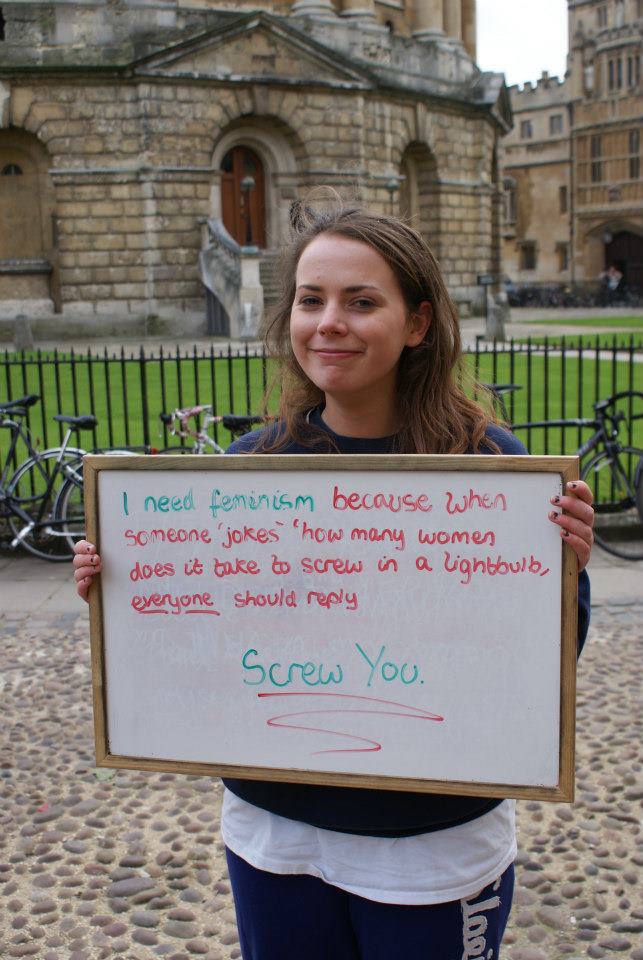 I need feminism because when
someone 'jokes' 'how many women
does it take to screw in a lightbulb,
everyone should reply
Screw You.